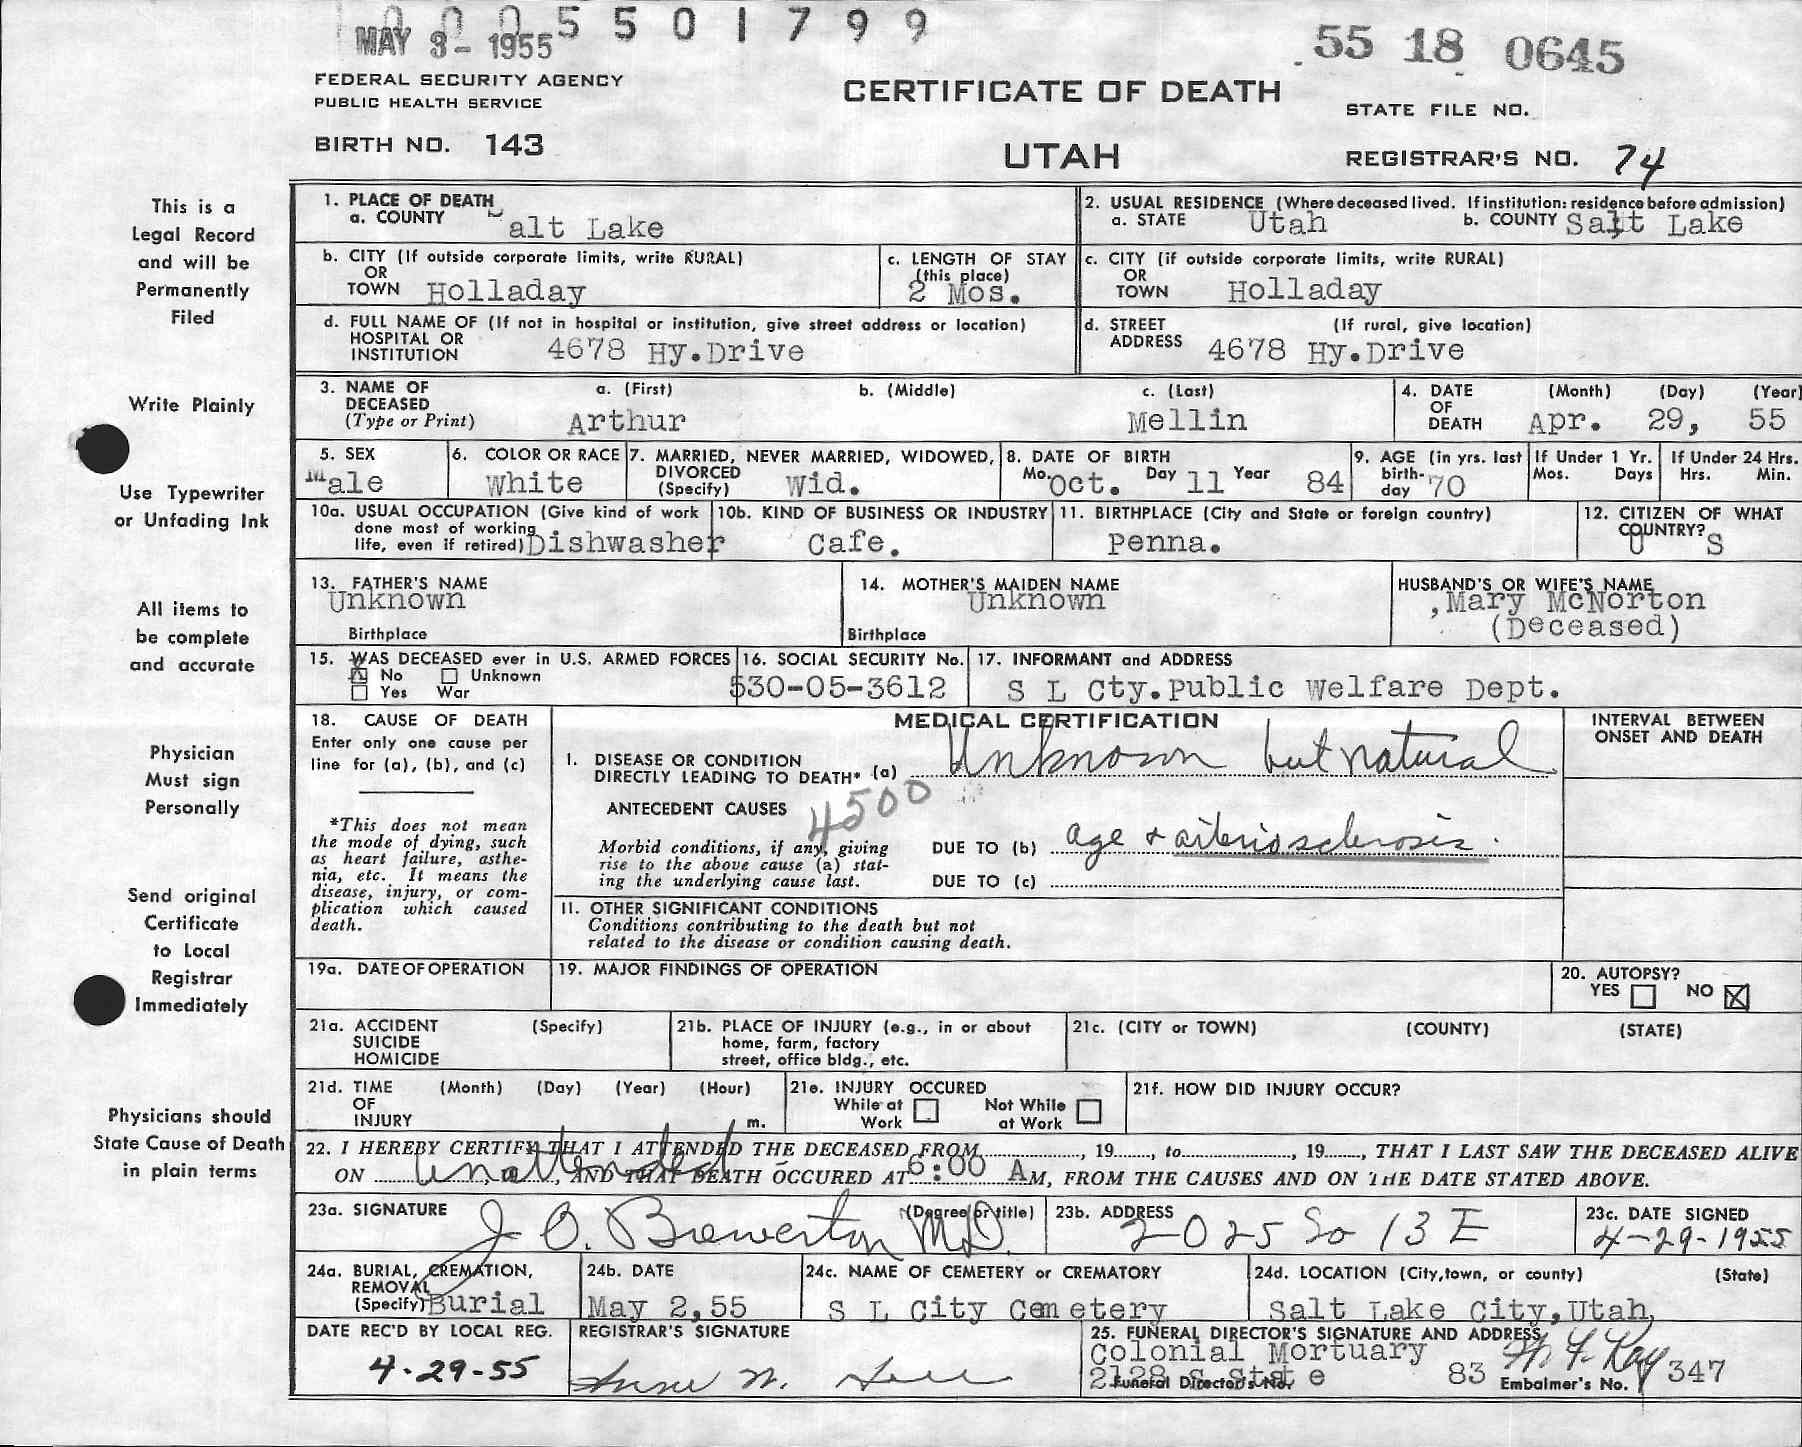 0005501799
MAY 3 - 1955
55 18 0645
FEDERAL SECURITY AGENCY
PUBLIC HEALTH SERVICE
CERTIFICATE OF DEATH
STATE FILE NO.
BIRTH NO. 143
UTAH
REGISTRAR'S NO. 74
This is a
Legal Record
and will be
Permanently
Filed
Write Plainly
Use Typewriter
or Unfading Ink
All items to
be complete
and accurate
Physician
Must sign
Personally
Send original
Certificate
to Local
Registrar
Immediately
Physicians should
State Cause of Death
in plain terms
1. PLACE OF DEATH
a. COUNTY Salt Lake
2. USUAL RESIDENCE (Where deceased lived. If institution: residence before admission)
a. STATE Utah b. COUNTY Salt Lake
b. CITY (If outside corporate limits, write RURAL)
OR
TOWN Holladay
c. LENGTH OF STAY
(this place)
2 Mos.
c. CITY (if outside corporate limits, write RURAL)
OR
TOWN Holladay
d. FULL NAME OF (If not in hospital or institution, give street address or location)
HOSPITAL OR
INSTITUTION 4678 Hy.Drive
d. STREET (If rural, give location)
ADDRESS 4678 Hy.Drive
3. NAME OF a. (First) b. (Middle) c. (Last)
DECEASED
(Type or Print) Arthur Mellin
4. DATE (Month) (Day) (Year)
OF
DEATH Apr. 29, 55
5. SEX
Male
6. COLOR OR RACE
White
7. MARRIED, NEVER MARRIED, WIDOWED,
DIVORCED
(Specify) Wid.
8. DATE OF BIRTH
Mo. Oct. Day 11 Year 84
9. AGE (in yrs. last
birth-
day 70
If Under 1 Yr.
Mos. Days
If Under 24 Hrs.
Hrs. Min.
10a. USUAL OCCUPATION (Give kind of work
done most of working
life, even if retired) Dishwasher
10b. KIND OF BUSINESS OR INDUSTRY
Cafe.
11. BIRTHPLACE (City and State or foreign country)
Penna.
12. CITIZEN OF WHAT
COUNTRY?
U S
13. FATHER'S NAME
Unknown
Birthplace
14. MOTHER'S MAIDEN NAME
Unknown
Birthplace
HUSBAND'S OR WIFE'S NAME
,Mary McNorton
(Deceased)
15. WAS DECEASED ever in U.S. ARMED FORCES
No Unknown
Yes War
16. SOCIAL SECURITY No.
530-05-3612
17. INFORMANT and ADDRESS
S L Cty.Public Welfare Dept.
18. CAUSE OF DEATH
Enter only one cause per
line for (a), (b), and (c)
*This does not mean
the mode of dying, such
as heart failure, asthe-
nia, etc. It means the
disease, injury, or com-
plication which caused
death.
MEDICAL CERTIFICATION
INTERVAL BETWEEN
ONSET AND DEATH
I. DISEASE OR CONDITION
DIRECTLY LEADING TO DEATH* (a) Unknown but natural
ANTECEDENT CAUSES 4500
Morbid conditions, if any, giving
rise to the above cause (a) stat-
ing the underlying cause last.
DUE TO (b) age + arteriosclerosis.
DUE TO (c)
II. OTHER SIGNIFICANT CONDITIONS
Conditions contributing to the death but not
related to the disease or condition causing death.
19a. DATE OF OPERATION
19. MAJOR FINDINGS OF OPERATION
20. AUTOPSY?
YES NO
21a. ACCIDENT (Specify)
SUICIDE
HOMICIDE
21b. PLACE OF INJURY (e.g., in or about
home, farm, factory
street, office bldg., etc.
21c. (CITY or TOWN) (COUNTY) (STATE)
21d. TIME (Month) (Day) (Year) (Hour)
OF
INJURY m.
21e. INJURY OCCURED
While at Work Not While at Work
21f. HOW DID INJURY OCCUR?
22. I HEREBY CERTIFY THAT I ATTENDED THE DECEASED FROM ..., 19..., to ..., 19..., THAT I LAST SAW THE DECEASED ALIVE
ON unattended, AND THAT DEATH OCCURED AT 6:00 AM, FROM THE CAUSES AND ON THE DATE STATED ABOVE.
23a. SIGNATURE (Degree or title)
J O. Brewerton M.D.
23b. ADDRESS
2025 So 13 E
23c. DATE SIGNED
4-29-1955
24a. BURIAL, CREMATION,
REMOVAL
(Specify) Burial
24b. DATE
May 2,55
24c. NAME OF CEMETERY or CREMATORY
S L City Cemetery
24d. LOCATION (City, town, or county) (State)
Salt Lake City,Utah,
DATE REC'D BY LOCAL REG.
4-29-55
REGISTRAR'S SIGNATURE
25. FUNERAL DIRECTOR'S SIGNATURE AND ADDRESS
Colonial Mortuary
2128 S State
Funeral Director's No. 83 Embalmer's No. 347